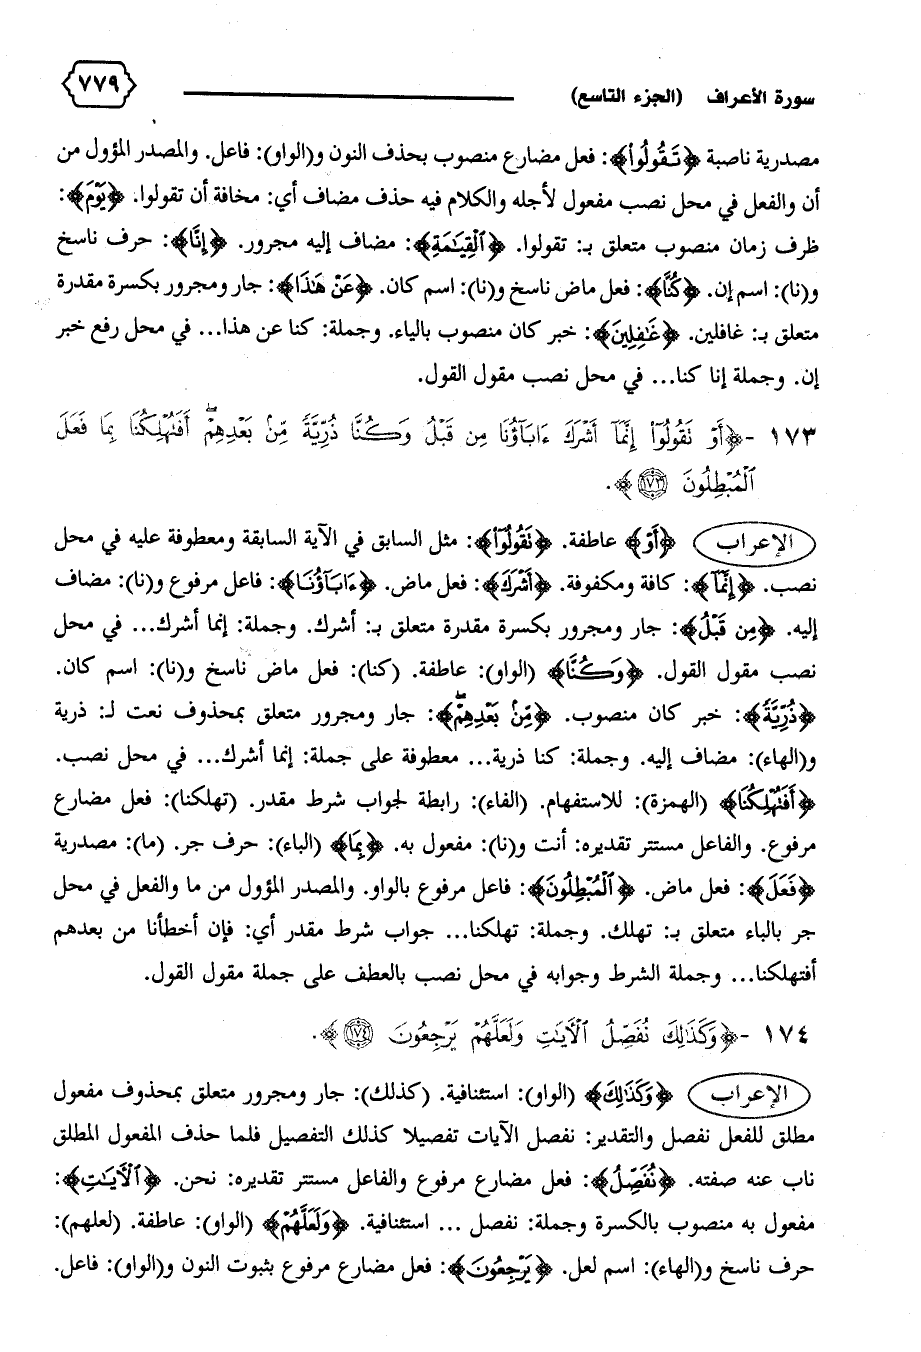 سورة الأعراف (الجزء التاسع) ٧٧٩
مصدرية ناصبة ﴿تَقُولُوا۟﴾: فعل مضارع منصوب بحذف النون و(الواو): فاعل. والمصدر المؤول من
أن والفعل في محل نصب مفعول لأجله والكلام فيه حذف مضاف أي: مخافة أن تقولوا. ﴿يَوْمَ﴾:
ظرف زمان منصوب متعلق بـ: تقولوا. ﴿ٱلْقِيَٰمَةِ﴾: مضاف إليه مجرور. ﴿إِنَّا﴾: حرف ناسخ
و(نا): اسم إن. ﴿كُنَّا﴾: فعل ماض ناسخ و(نا): اسم كان. ﴿عَنْ هَٰذَا﴾: جار ومجرور بكسرة مقدرة
متعلق بـ: غافلين. ﴿غَٰفِلِينَ﴾: خبر كان منصوب بالياء. وجملة: كنا عن هذا... في محل رفع خبر
إن. وجملة إنا كنا... في محل نصب مقول القول.
١٧٣ - ﴿أَوْ تَقُولُوٓا۟ إِنَّمَآ أَشْرَكَ ءَابَآؤُنَا مِن قَبْلُ وَكُنَّا ذُرِّيَّةً مِّنۢ بَعْدِهِمْ ۖ أَفَتُهْلِكُنَا بِمَا فَعَلَ
ٱلْمُبْطِلُونَ ١٧٣﴾.
الإعراب ﴿أَوْ﴾ عاطفة. ﴿تَقُولُوٓا۟﴾: مثل السابق في الآية السابقة ومعطوفة عليه في محل
نصب. ﴿إِنَّمَآ﴾: كافة ومكفوفة. ﴿أَشْرَكَ﴾: فعل ماض. ﴿ءَابَآؤُنَا﴾: فاعل مرفوع و(نا): مضاف
إليه. ﴿مِن قَبْلُ﴾: جار ومجرور بكسرة مقدرة متعلق بـ: أشرك. وجملة: إنما أشرك... في محل
نصب مقول القول. ﴿وَكُنَّا﴾ (الواو): عاطفة. (كنا): فعل ماض ناسخ و(نا): اسم كان.
﴿ذُرِّيَّةً﴾: خبر كان منصوب. ﴿مِّنۢ بَعْدِهِمْ ۖ﴾: جار ومجرور متعلق بمحذوف نعت لـ: ذرية
و(الهاء): مضاف إليه. وجملة: كنا ذرية... معطوفة على جملة: إنما أشرك... في محل نصب.
﴿أَفَتُهْلِكُنَا﴾ (الهمزة): للاستفهام. (الفاء): رابطة لجواب شرط مقدر. (تهلكنا): فعل مضارع
مرفوع. والفاعل مستتر تقديره: أنت و(نا): مفعول به. ﴿بِمَا﴾ (الباء): حرف جر. (ما): مصدرية
﴿فَعَلَ﴾: فعل ماض. ﴿ٱلْمُبْطِلُونَ﴾: فاعل مرفوع بالواو. والمصدر المؤول من ما والفعل في محل
جر بالباء متعلق بـ: تهلك. وجملة: تهلكنا... جواب شرط مقدر أي: فإن أخطأنا من بعدهم
أفتهلكنا... وجملة الشرط وجوابه في محل نصب بالعطف على جملة مقول القول.
١٧٤ - ﴿وَكَذَٰلِكَ نُفَصِّلُ ٱلْءَايَٰتِ وَلَعَلَّهُمْ يَرْجِعُونَ ١٧٤﴾.
الإعراب ﴿وَكَذَٰلِكَ﴾ (الواو): استئنافية. (كذلك): جار ومجرور متعلق بمحذوف مفعول
مطلق للفعل نفصل والتقدير: نفصل الآيات تفصيلا كذلك التفصيل فلما حذف المفعول المطلق
ناب عنه صفته. ﴿نُفَصِّلُ﴾: فعل مضارع مرفوع والفاعل مستتر تقديره: نحن. ﴿ٱلْءَايَٰتِ﴾:
مفعول به منصوب بالكسرة وجملة: نفصل ... استئنافية. ﴿وَلَعَلَّهُمْ﴾ (الواو): عاطفة. (لعلهم):
حرف ناسخ و(الهاء): اسم لعل. ﴿يَرْجِعُونَ﴾: فعل مضارع مرفوع بثبوت النون و(الواو): فاعل.